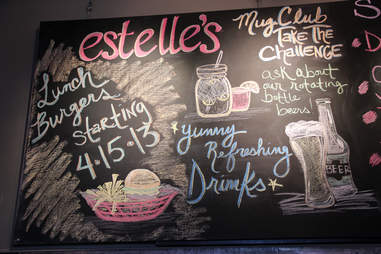 estelle's
Lunch
Burgers
Starting
4.15.13
Yummy
Refreshing
Drinks
Mug Club
Take The
Challenge
ask about
our rotating
bottle
beers!
BEER